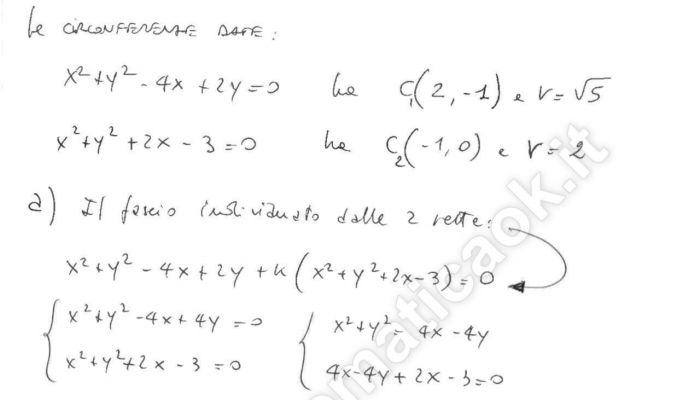 Le CIRCONFERENZE DATE:
x²+y²-4x+2y=0 ha C₁(2,-1) e r=√5
x²+y²+2x-3=0 ha C₂(-1,0) e r=2
a) Il fascio individuato dalle 2 rette:
x²+y²-4x+2y+k(x²+y²+2x-3)=0
{ x²+y²-4x+4y=0 { x²+y²=4x-4y
x²+y²+2x-3=0 4x-4y+2x-3=0
omaticaok.it